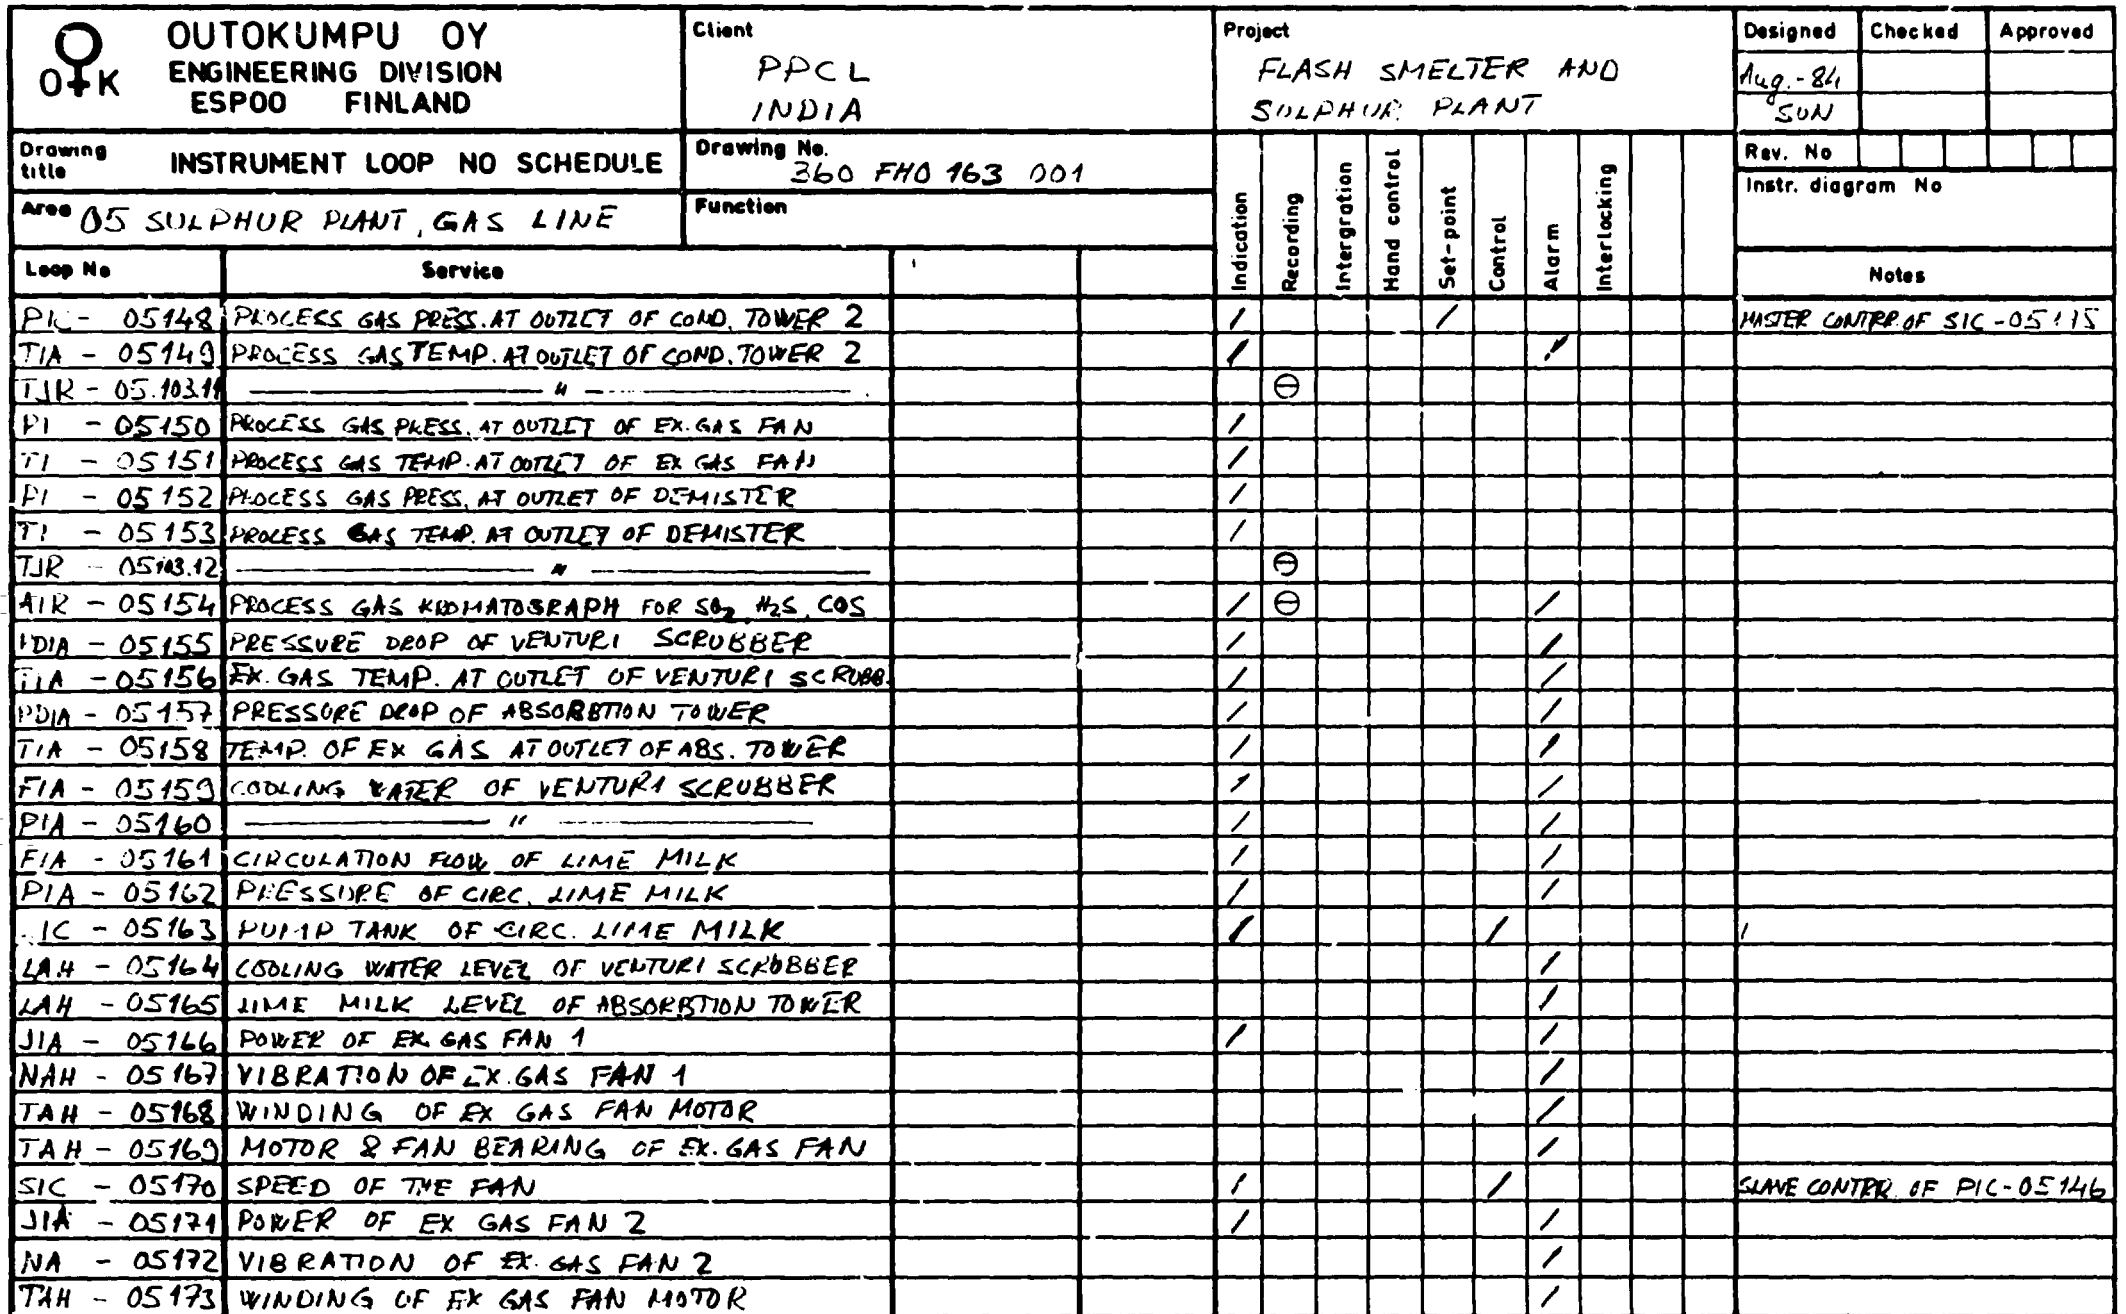 OUTOKUMPU OY
ENGINEERING DIVISION
ESPOO FINLAND
O K
Client
PPCL
INDIA
Project
FLASH SMELTER AND
SULPHUR PLANT
Designed Checked Approved
Aug.-84
SUN
Drawing title INSTRUMENT LOOP NO SCHEDULE
Drawing No.
360 FHO 163 001
Rev. No
Instr. diagram No
Area 05 SULPHUR PLANT, GAS LINE
Function
Indication
Recording
Intergration
Hand control
Set-point
Control
Alarm
Interlocking
Loop No Service Notes
PIC - 05148 PROCESS GAS PRESS. AT OUTLET OF COND. TOWER 2 / / MASTER CONTRR. OF SIC -05115
TIA - 05149 PROCESS GAS TEMP. AT OUTLET OF COND. TOWER 2 / /
TJR - 05.103.11 —— " —— ⊖
PI - 05150 PROCESS GAS PRESS. AT OUTLET OF EX. GAS FAN /
TI - 05151 PROCESS GAS TEMP. AT OUTLET OF EX GAS FAN /
PI - 05152 PROCESS GAS PRESS. AT OUTLET OF DEMISTER /
TI - 05153 PROCESS GAS TEMP. AT OUTLET OF DEMISTER /
TJR - 05103.12 —— " —— ⊖
AIR - 05154 PROCESS GAS KROMATOGRAPH FOR SO2, H2S, COS / ⊖ /
PDIA - 05155 PRESSURE DROP OF VENTURI SCRUBBER / /
TIA - 05156 EX. GAS TEMP. AT OUTLET OF VENTURI SCRUBB. / /
PDIA - 05157 PRESSURE DROP OF ABSORBTION TOWER / /
TIA - 05158 TEMP. OF EX GAS AT OUTLET OF ABS. TOWER / /
FIA - 05159 COOLING WATER OF VENTURI SCRUBBER / /
PIA - 05160 —— " —— / /
FIA - 05161 CIRCULATION FLOW OF LIME MILK / /
PIA - 05162 PRESSURE OF CIRC. LIME MILK / /
IC - 05163 PUMP TANK OF CIRC. LIME MILK / /
LAH - 05164 COOLING WATER LEVEL OF VENTURI SCRUBBER /
LAH - 05165 LIME MILK LEVEL OF ABSORBTION TOWER /
JIA - 05166 POWER OF EX. GAS FAN 1 / /
NAH - 05167 VIBRATION OF EX. GAS FAN 1 /
TAH - 05168 WINDING OF EX GAS FAN MOTOR /
TAH - 05169 MOTOR & FAN BEARING OF EX. GAS FAN /
SIC - 05170 SPEED OF THE FAN / / SLAVE CONTRR. OF PIC-05146
JIA - 05171 POWER OF EX GAS FAN 2 / /
NA - 05172 VIBRATION OF EX. GAS FAN 2 /
TAH - 05173 WINDING OF EX GAS FAN MOTOR /